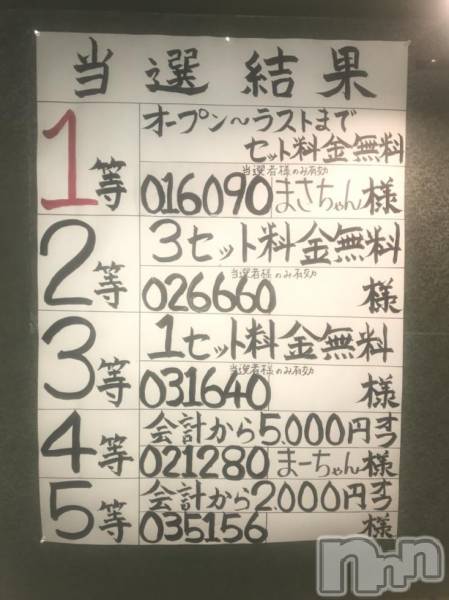 当選結果
1等
オープン～ラストまで
セット料金無料
当選者様のみ有効
016090 まさちゃん様
2等
3セット料金無料
当選者様のみ有効
026660 様
3等
1セット料金無料
当選者様のみ有効
031640 様
4等
会計から5.000円オフ
021280 まーちゃん様
5等
会計から2.000円オフ
035156 様
nnn